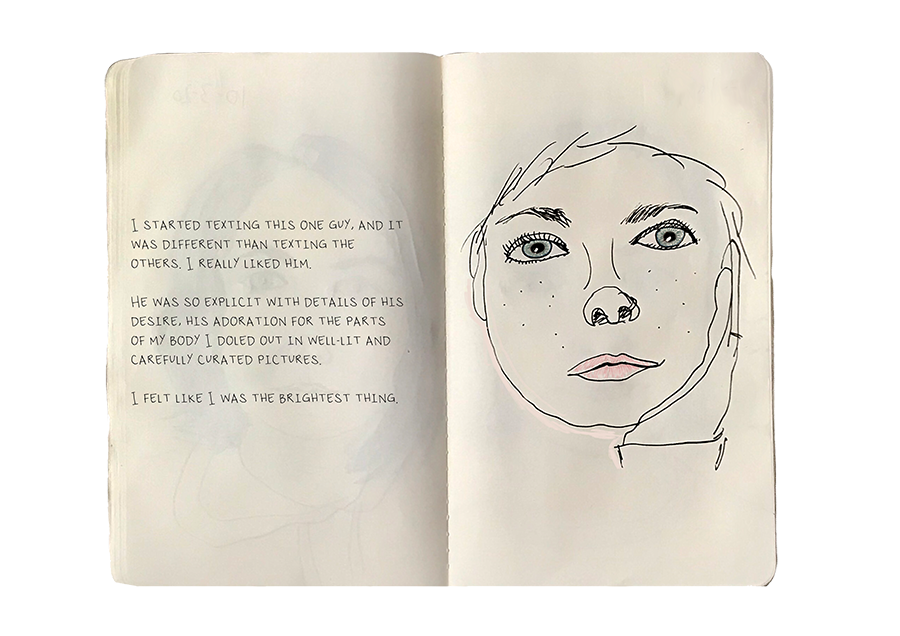 I STARTED TEXTING THIS ONE GUY, AND IT
WAS DIFFERENT THAN TEXTING THE
OTHERS. I REALLY LIKED HIM.
HE WAS SO EXPLICIT WITH DETAILS OF HIS
DESIRE, HIS ADORATION FOR THE PARTS
OF MY BODY I DOLED OUT IN WELL-LIT AND
CAREFULLY CURATED PICTURES.
I FELT LIKE I WAS THE BRIGHTEST THING.